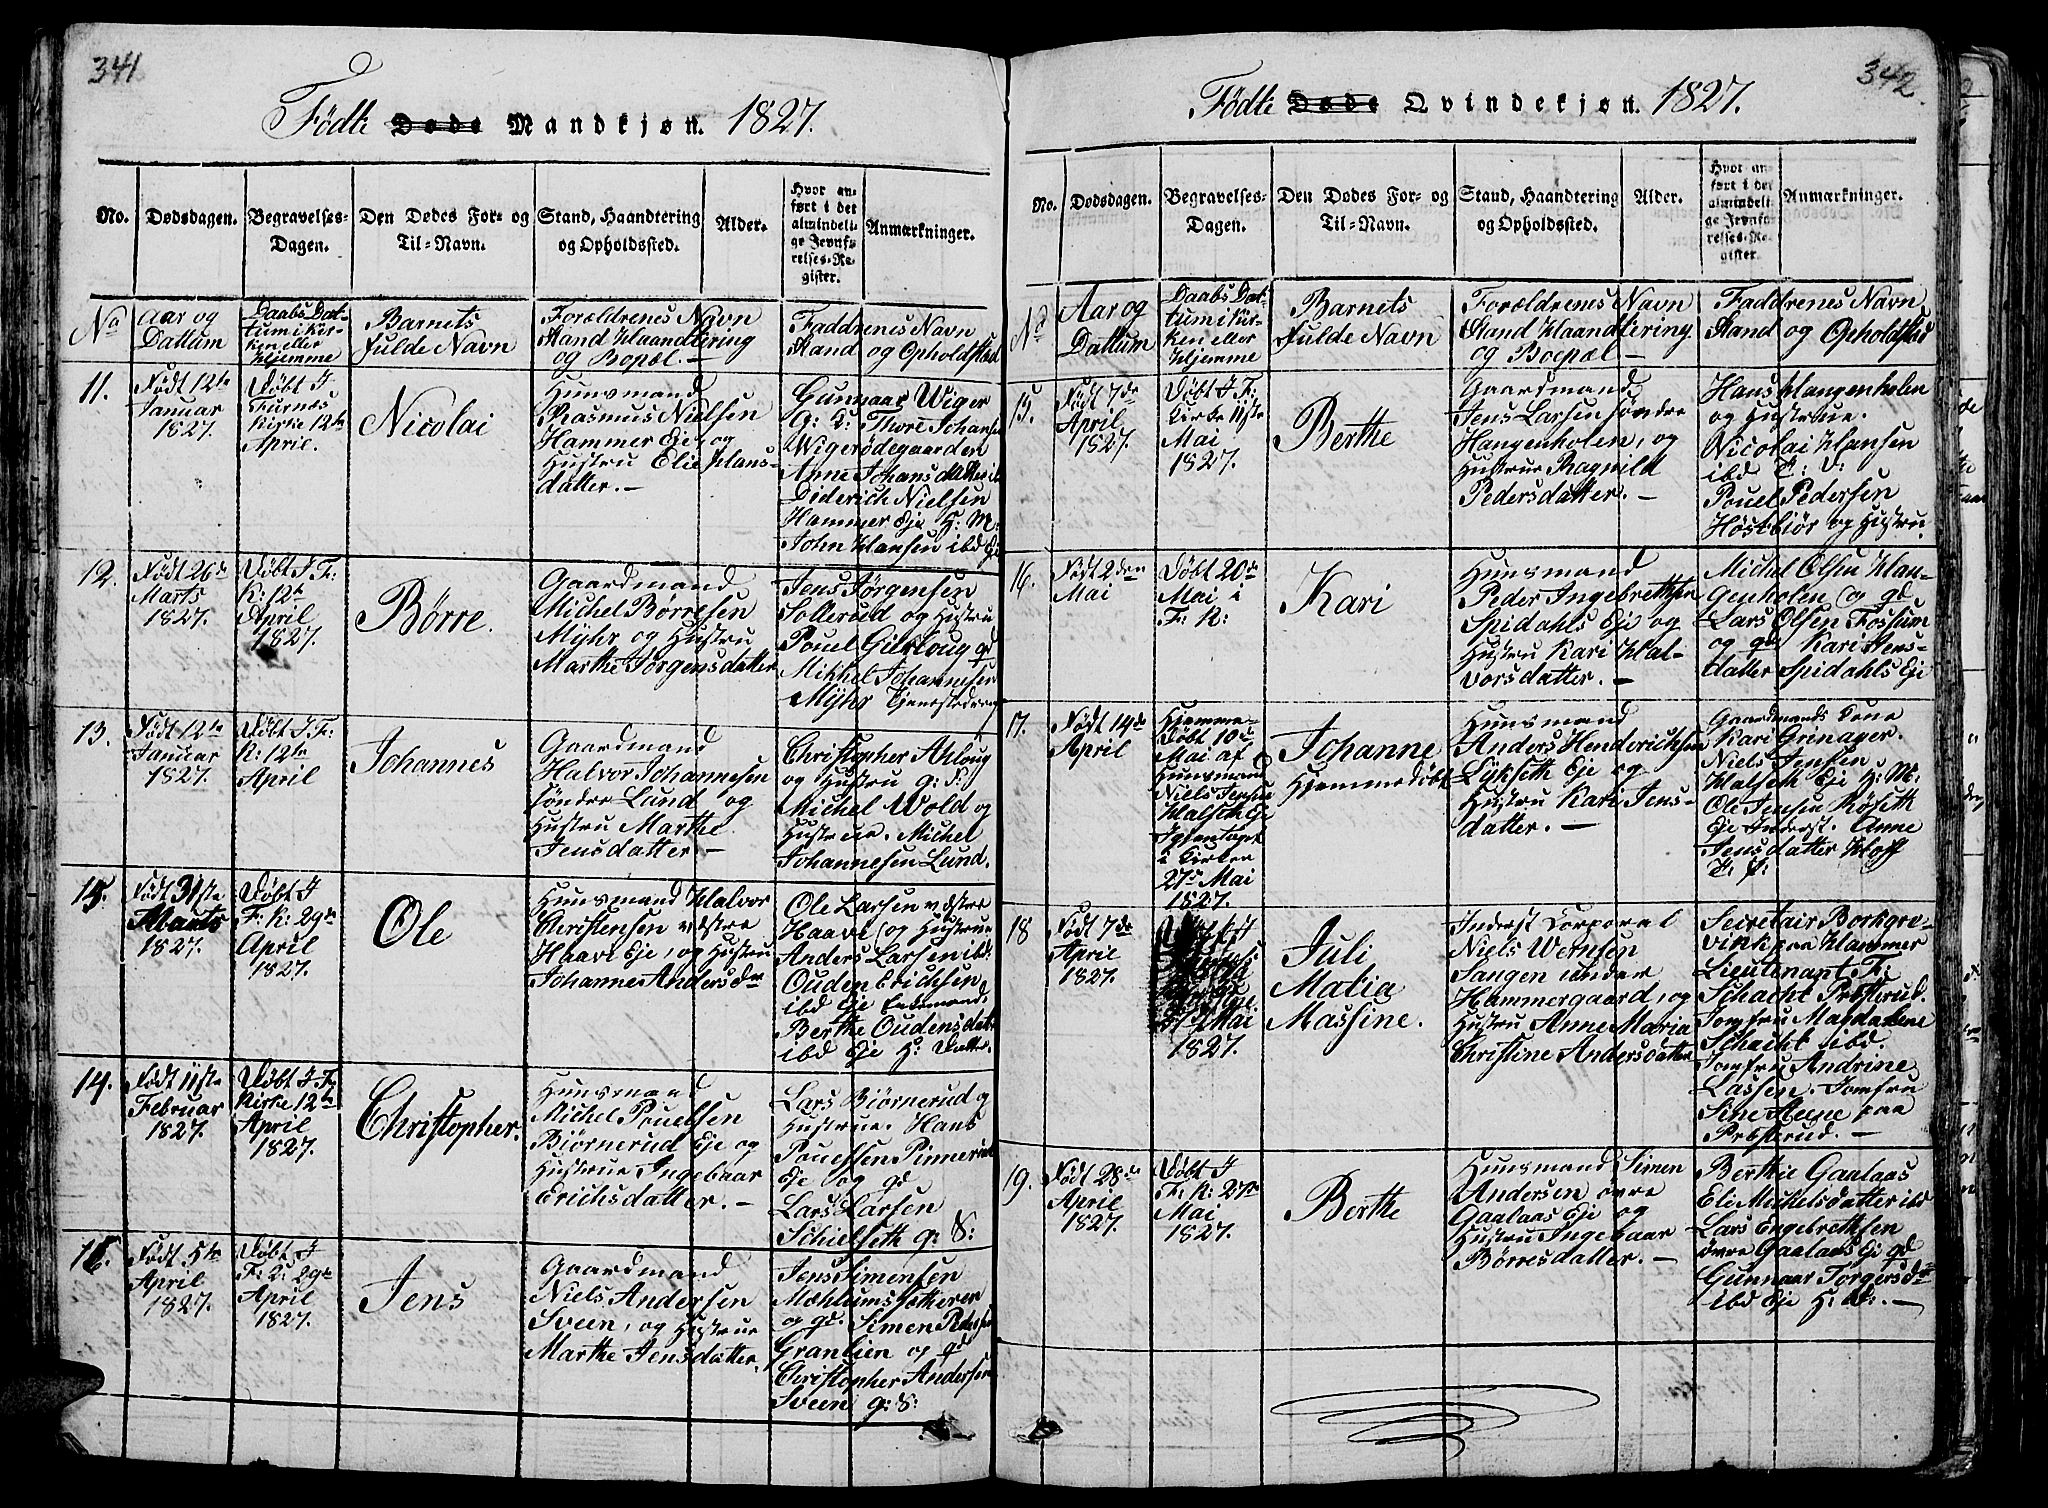 341
Fødte Døde Mandkjøn. 1827.
No.
Dødsdagen.
Begravelses-
Dagen.
Den Dødes For- og
Til-Navn.
Stand, Haandtering
og Opholdssted.
Alder.
Hvor an-
ført i det
almindeli-
ge Jevnfø-
relses-Re-
gister.
Anmærkninger.
No
Aar og
Dattum
Daabs Dat-
tum i Kir-
ken eller
Hjemme
Barnets
fulde Navn
Forældrenes Navn
Stand Haandtering
og Bopæl. –
Faddrenes Navn
Stand og Opholdsted
11.
Født 12te
Januar
1827.
Døbt I
Furnæs
Kirke 12te
April.
Nicolai
Huusmand
Rasmus Nielsen
Hammer Eje, og
Hustru Elie Hans-
datter. –
Gunnaar Wiger
g: k: Thore Johansen
Wigerødegaarden
Anne Johansdatter ib
Diderich Nielsen
Hammer Eje H: M:
John Hansen ibd Eje
12.
Født 26de
Marts
1827.
Døbt I F:
K: 12te
April
1827.
Børre.
Gaardmand
Michel Børresen
Myhr og Hustru
Marthe Jørgensdatter
Jens Jørgensen
Sollerud og Hustru
Pouel Gurloug gd
Mikkel Johannesen
Myhr Tjenestedreng
13.
Født 12te
Januar
1827.
Døbt I F:
K: 12te
April
Johannes
Gaardmand
Halvor Johannesen
søndre Lund og
Hustru Marthe
Jensdatter –
Christopher Ahloug
og Hustru g: F:
Michel Wold og
Hustrue. Michel
Johannesen Lund.
15.
Født 31ste
Marts
1827.
Døbt I
F: K: 29de
April
1827.
Ole
Huusmand Halvor
Christensen væstre
Haave Eje, og Hustru
Johanne Andersdr
Ole Larsen væstre
Haave og Hustrue
Anders Larsen ibd:
Ouden Erichsen
ibd Eje
Berthe Oudensdatter
ibd Eje H: Datter.
14.
Født 11ste
Februar
1827.
Døbt I F:
Kirke 12te
April
1827.
Christopher.
Huusmand
Michel Pouelsen
Biørnerud Eje og
Hustrue Ingebaar
Erichsdatter. –
Lars Biørnerud g
Hustrue. Hans
Pouelsen Pinnerud
Eje og gd
Lars Larsen
Schielseth g: S:
16.
Født 5te
April
1827.
Døbt I
F: K: 29de
April
1827.
Jens
Gaardmand
Niels Andersen
Sveen, og Hustrue
Marthe Jensdatter.
Jens Simensen
Mæhlums
og gd. Simen Pedersen
Granlien og gd
Christopher Andersen
Sveen g: S:
342.
Fødte Døde Qvindekjøn. 1827.
No.
Dødsdagen.
Begravelses-
Dagen.
Den Dødes For- og
Til-Navn.
Stand, Haandtering
og Opholdssted.
Alder.
Hvor an-
ført i det
almindeli-
ge Jevnfø-
relses-Re-
gister.
Anmærkninger.
No
Aar og
Dattum
Daabs Dat-
tum i Kir-
ken eller
Hjemme
Barnets
fulde Navn
Forældrenes Navn
Stand Haandtering
og Boepæl –
Faddrenes Navn
Stand og Opholdsted
15.
Født 7de
April
1827.
Døbt I F:
Kirke 11ste
Mai
1827.
Berthe
Gaardmand
Jens Larsen søndre
Hangenholen, og
Hustrue Ragnild
Pedersdatter. –
Hans Hangenholen
og Hustrue.
Nicolai Hansen
ibd
Pouel Pedersen
Høstbiør og Hustru.
16.
Født 2den
Mai
Døbt 20de
Mai i
F: K:
Kari
Huusmand
Peder Ingebrethsen
Spidahls Eje og
Hustru Kari Hal-
vorsdatter. –
Michel Olsen Han-
genholen og gd
Lars Olsen Fossum
og gd Kari Jens-
datter Spidahls Eje
17.
Født 14de
April
Hjemme-
Døbt 10de
Mai af
Huusmand
Niels Jensen
Halseth Eje
Igjentaget
i Kirken
27de Mai
1827.
Johanne
Hjemmedøbt
Huusmand
Anders Henderichsen
Lykseth Eje og
Hustru Kari Jens-
datter. –
Gaardmands Kone
Kari Grinager.
Niels Jensen
Halseth Eje H: M:
Ole Jensen Røseth
Eje Inderst. Anne
Jensdatter Hoff
18
Født 7de
April
1827.
Mai
1827.
Juli
Malia
Massine.
Inderst Corporal
Niels Wernsen
Sangen under
Hammergaard, og
Hustru Anne Maria
Christine Andersdatter
Secretair Borkgre-
vink paa Hammer
Lieutenant F:
Schacht Præsterud.
Jomfru Magdalene
Schacht ibd.
Jomfru Andrine
Lassen. Jomfru
Sine Aeene paa
Præsterud. –
19.
Født 28de
April
1827.
Døbt I
F: K: 27de
Mai
1827.
Berthe
Huusmand Simen
Andersen øvre
Gaalaas Eje og
Hustru Ingebaar
Børresdatter. –
Berthie Gaalaas
Eli Mikkelsdatter ibd
Lars Engebrethsen
øvre Gaalaas Eje gd
Gunnaar Torgersdr
ibd Eje H: D: –